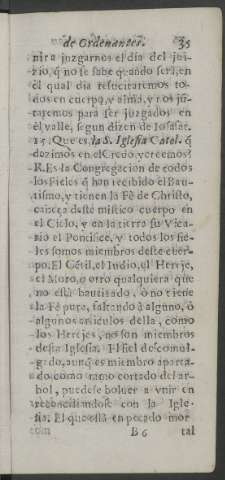 de Ordenantes. 35
nir a juzgarnos el dia del jui-
zio, q̃ no se sabe quando será, en
él qual dia resucitaremos to-
dos en cuerpo, y alma, y nos jũ-
taremos para ser juzgados en
el valle, segun dizen de Iosafat.
15. Que es la S. Iglesia Catol. q̃
dezimos en el Credo, y creemos?
R. Es la Congregacion de todos
los Fieles q̃ han recibido el Bau-
tismo, y tienen la Fè de Christo,
cabeça deste mistico cuerpo en
el Cielo, y en la tierra su Vica-
rio el Pontifice, y todos los fie-
les somos miembros deste cuer-
po. El Gẽtil, el Iudio, el Hereje,
el Moro, o otro qualquiera que
no està bautizado, ò no tiene
la Fè pura, faltando à alguno, ò
algunos articulos della, como
los Herejes, no son miembros
desta Iglesia. El fiel descomul-
gado, aunq̃ es miembro aparta-
do como ramo cortado del ar-
bol, puedese bolver a vnir en
reconciliandose con la Igle-
sia. El que està en pecado mor-
B 6 tal